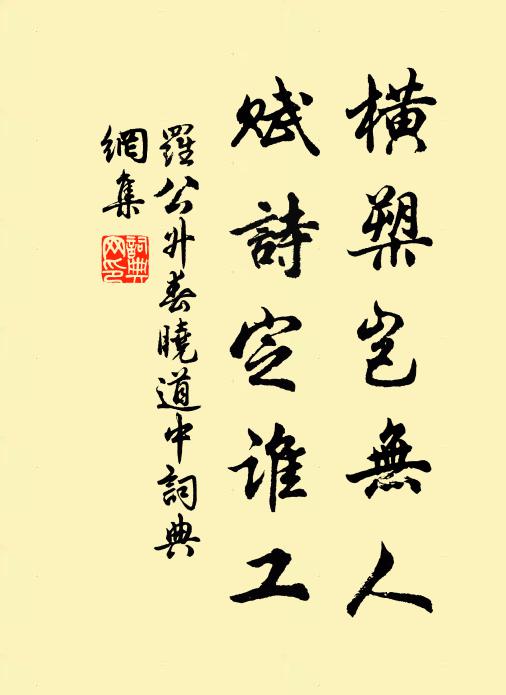 橫槊豈無人
賦詩定誰工
羅公升春曉道中詞典
網集
詞典
網印